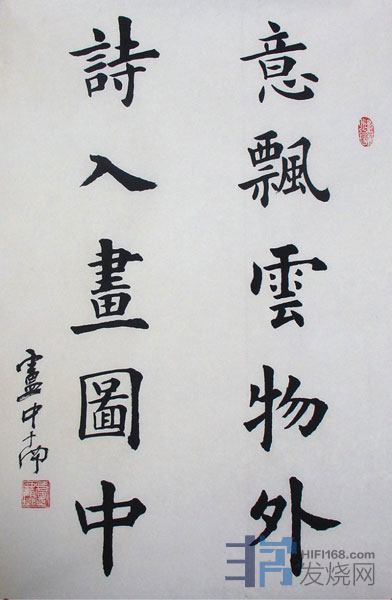 意飄雲物外
詩入畫圖中
盧中南
HIFI168.com
发烧网